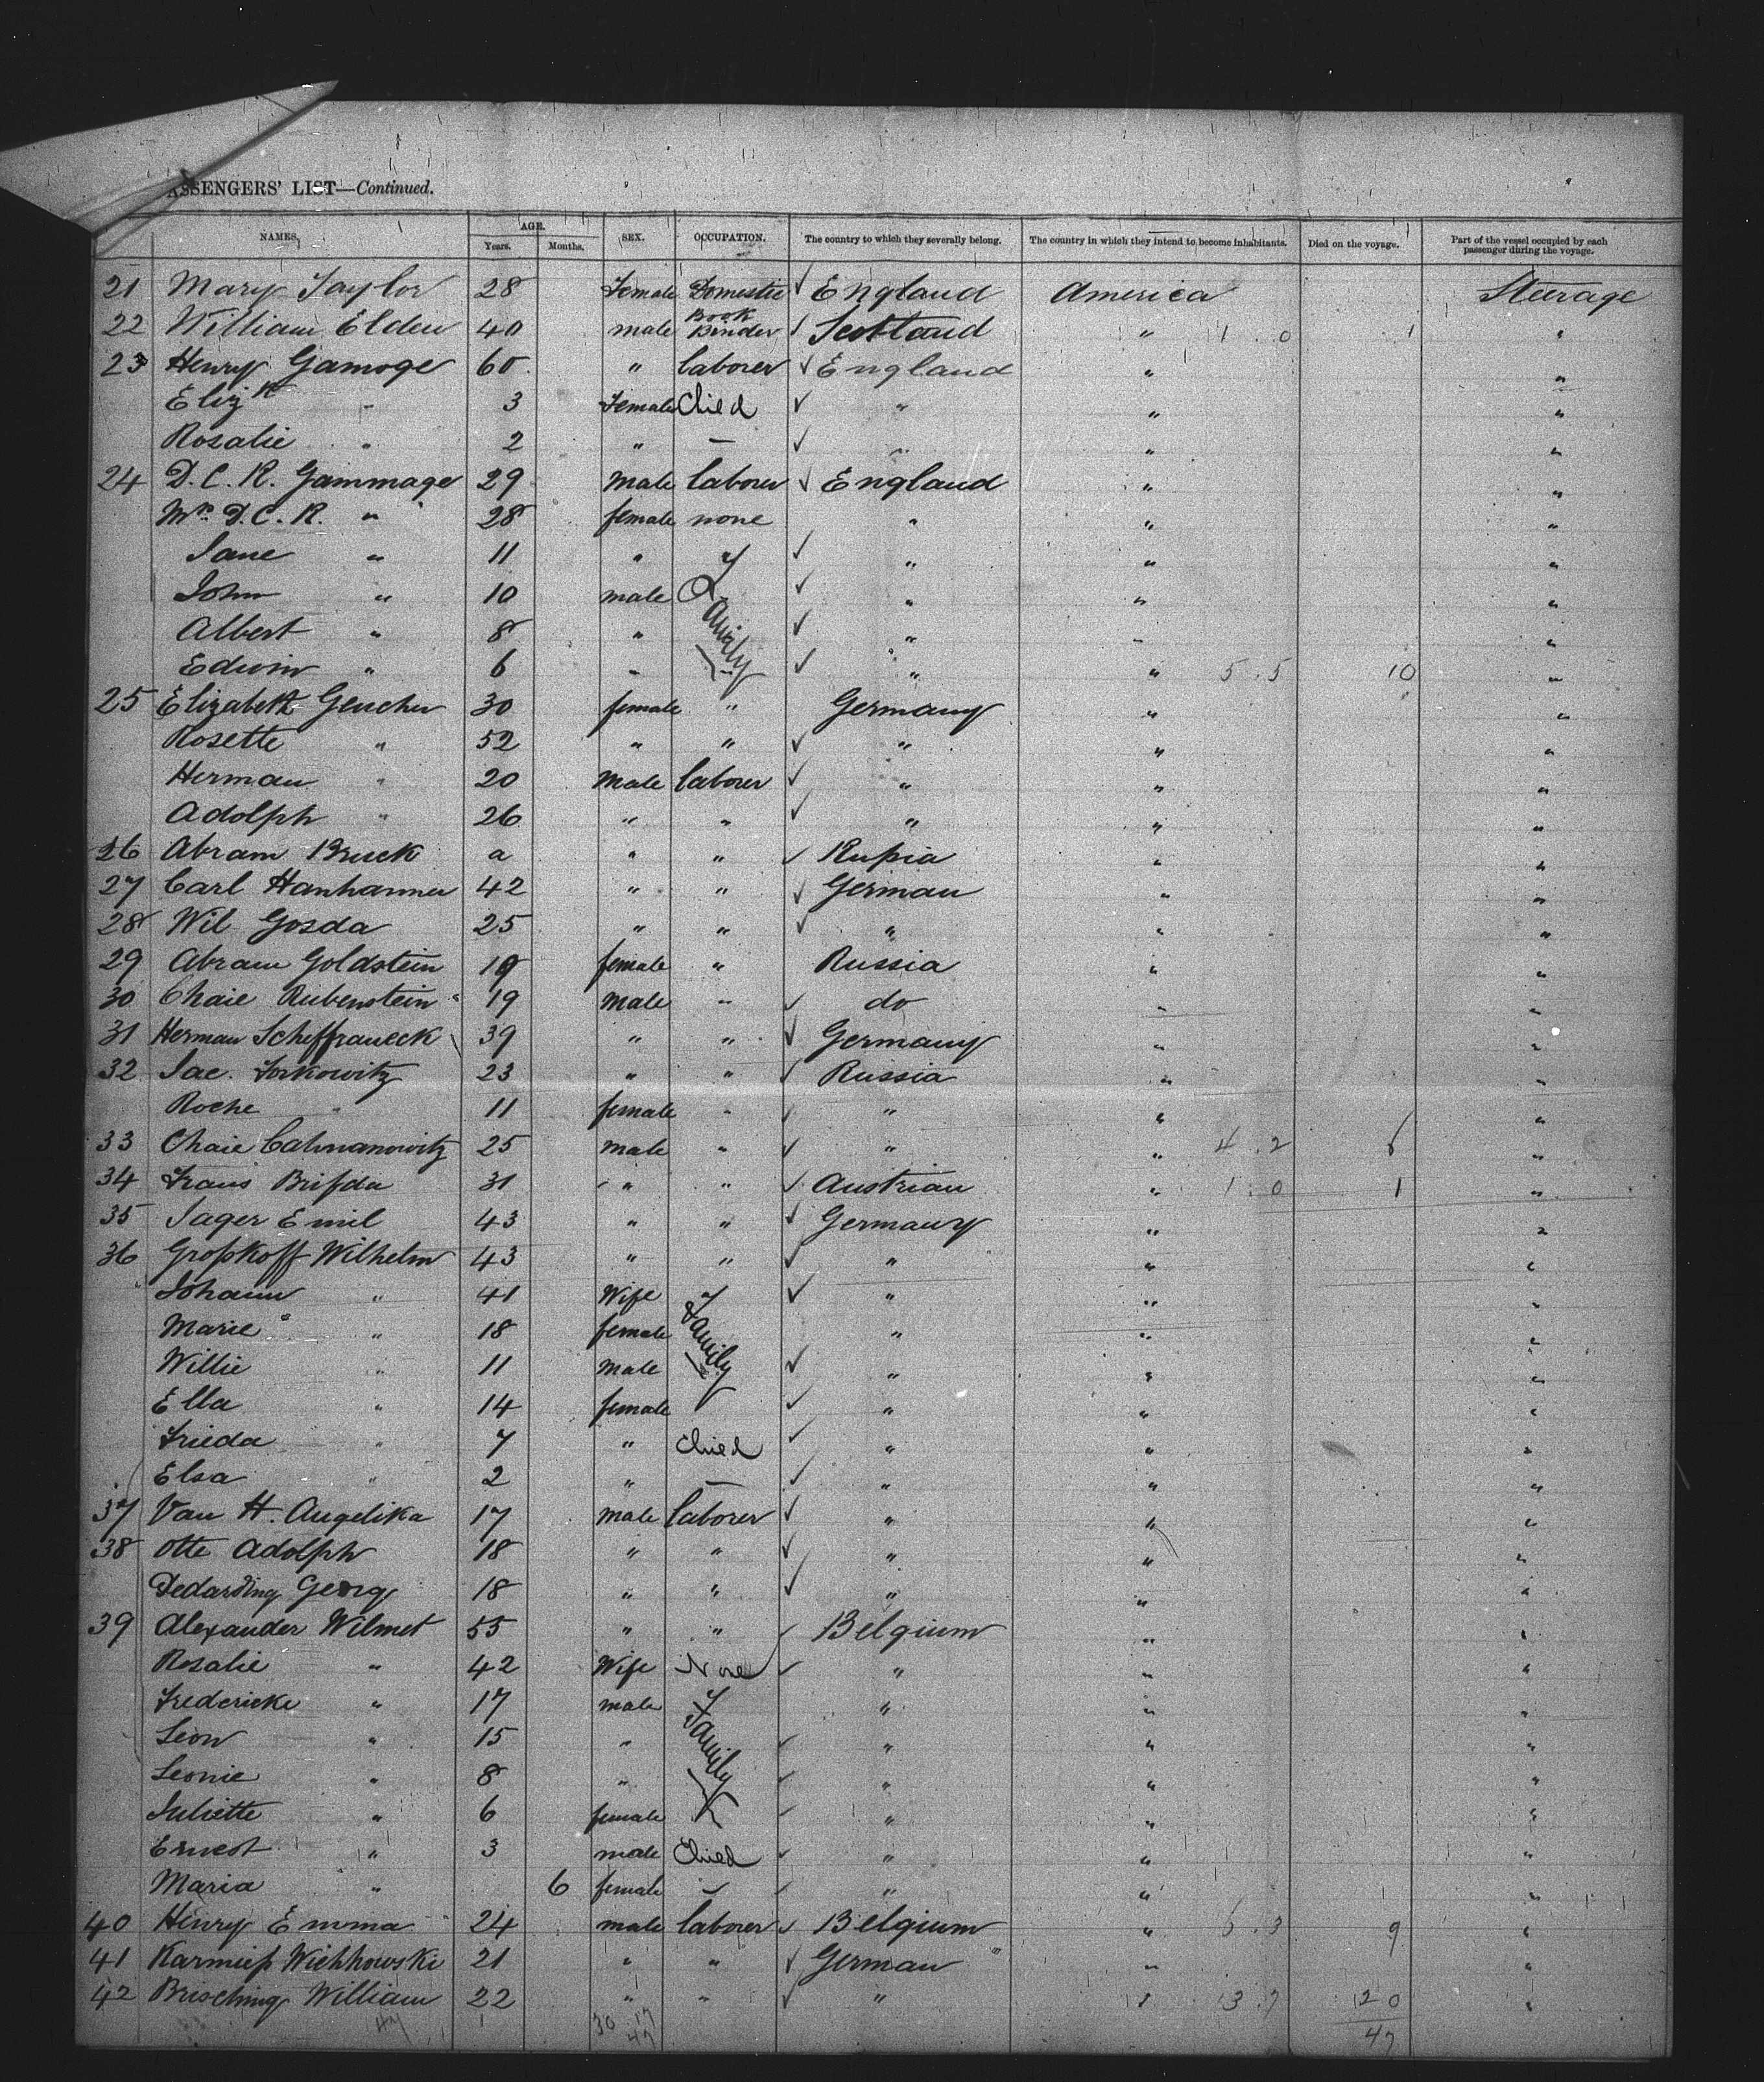 ASSENGERS' LIST—Continued.
NAMES. AGE. Years. Months. SEX. OCCUPATION. The country to which they severally belong. The country in which they intend to become inhabitants. Died on the voyage. Part of the vessel occupied by each passenger during the voyage.
21 Mary Taylor 28 Female Domestic ✓ England America Steerage
22 William Elden 40 male Book Binder ✓ Scotland " 1 . 0 1 "
23 Henry Gamoge 60 " laborer ✓ England " "
Elizth " 3 Female Child ✓ " " "
Rosalie " 2 " — ✓ " " "
24 D. C. R. Gammage 29 male laborer ✓ England " "
Mrs D. C. R. " 28 female none " " "
Jane " 11 " ✓ " " "
John " 10 male Family ✓ " " "
Albert " 8 " ✓ " " "
Edwin " 6 " ✓ " " 5 . 5 10 "
25 Elizabeth 30 female " Germany " "
Rosette " 52 " " ✓ " " "
Herman " 20 male laborer ✓ " " "
Adolph " 26 " " ✓ " " "
26 Abram Bruck a " " ✓ Rußia " "
27 Carl 42 " " ✓ German " "
28 Wil Gosda 25 " " ✓ " " "
29 Abram Goldstein 19 female " Russia " "
30 Chaie Rubenstein 19 male " ✓ do " "
31 Herman Scheffraneck 39 " " ✓ Germany " "
32 Jac. 23 " " ✓ Russia " "
Roche " 11 female " ✓ " " "
33 Chaie Calmanowitz 25 male " ✓ " " 4 . 2 6 "
34 Frans 31 " " ✓ Austrian " 1 . 0 1 "
35 Jager Emil 43 " " ✓ Germany " "
36 Großkoff Wilhelm 43 " " ✓ " " "
Johann " 41 Wife ✓ " " "
Marie " 18 female Family " " "
Willie " 11 male ✓ " " "
Ella " 14 female ✓ " " "
Frieda " 7 " Child ✓ " " "
Elsa " 2 " — ✓ " " "
37 Van H. Angelika 17 male laborer ✓ " " "
38 Otte Adolph 18 " " ✓ " " "
Dedarding Georg 18 " " ✓ " " "
39 Alexander Wilmet 55 " " ✓ Belgium " "
Rosalie " 42 Wife None ✓ " " "
Fredericke " 17 male " " "
Leon " 15 " Family ✓ " " "
Leonie " 8 " ✓ " " "
Juliette " 6 female ✓ " " "
Ernest " 3 male Child ✓ " " "
Maria " 6 female — ✓ " " "
40 Henry Emma 24 male laborer ✓ Belgium " 6 . 3 9 "
41 Karmieß Wichhowski 21 " " ✓ German " "
42 Brisching William 22 " " ✓ " " 3 . 7 20 "
47 30 17 47 47